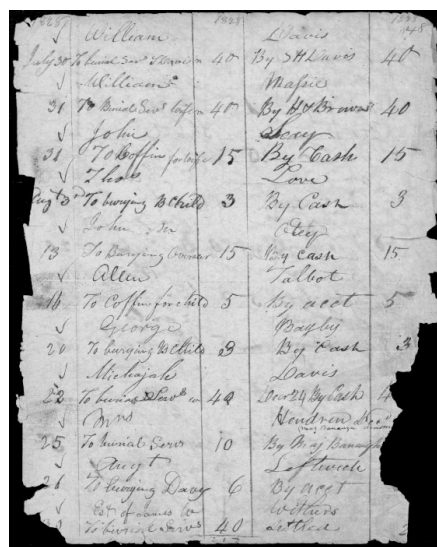 1828 1828
William Davis
July 30 To burial Serv 40 By S H Davis 40
William Massie
31 To Burial Servs 40 By H Brown 40
John Seay
31 To Coffin for 15 By Cash 15
Thos Love
Augt 3d To burying B Child 3 By Cash 3
John Otey
13 To Burying 15 By cash 15
Allen Talbot
16 To Coffin for child 5 By acct 5
George Bagby
20 To burying B Child 3 By Cash 3
Michajah Davis
22 To burial Servs 40 Decr 24 By Cash 4
Mrs Hendren
25 To burial Servs 10 By Maj
Augt Leftwich
26 To burying Davy 6 By acct
Est of James W Withers
To burial Servs 40 settled